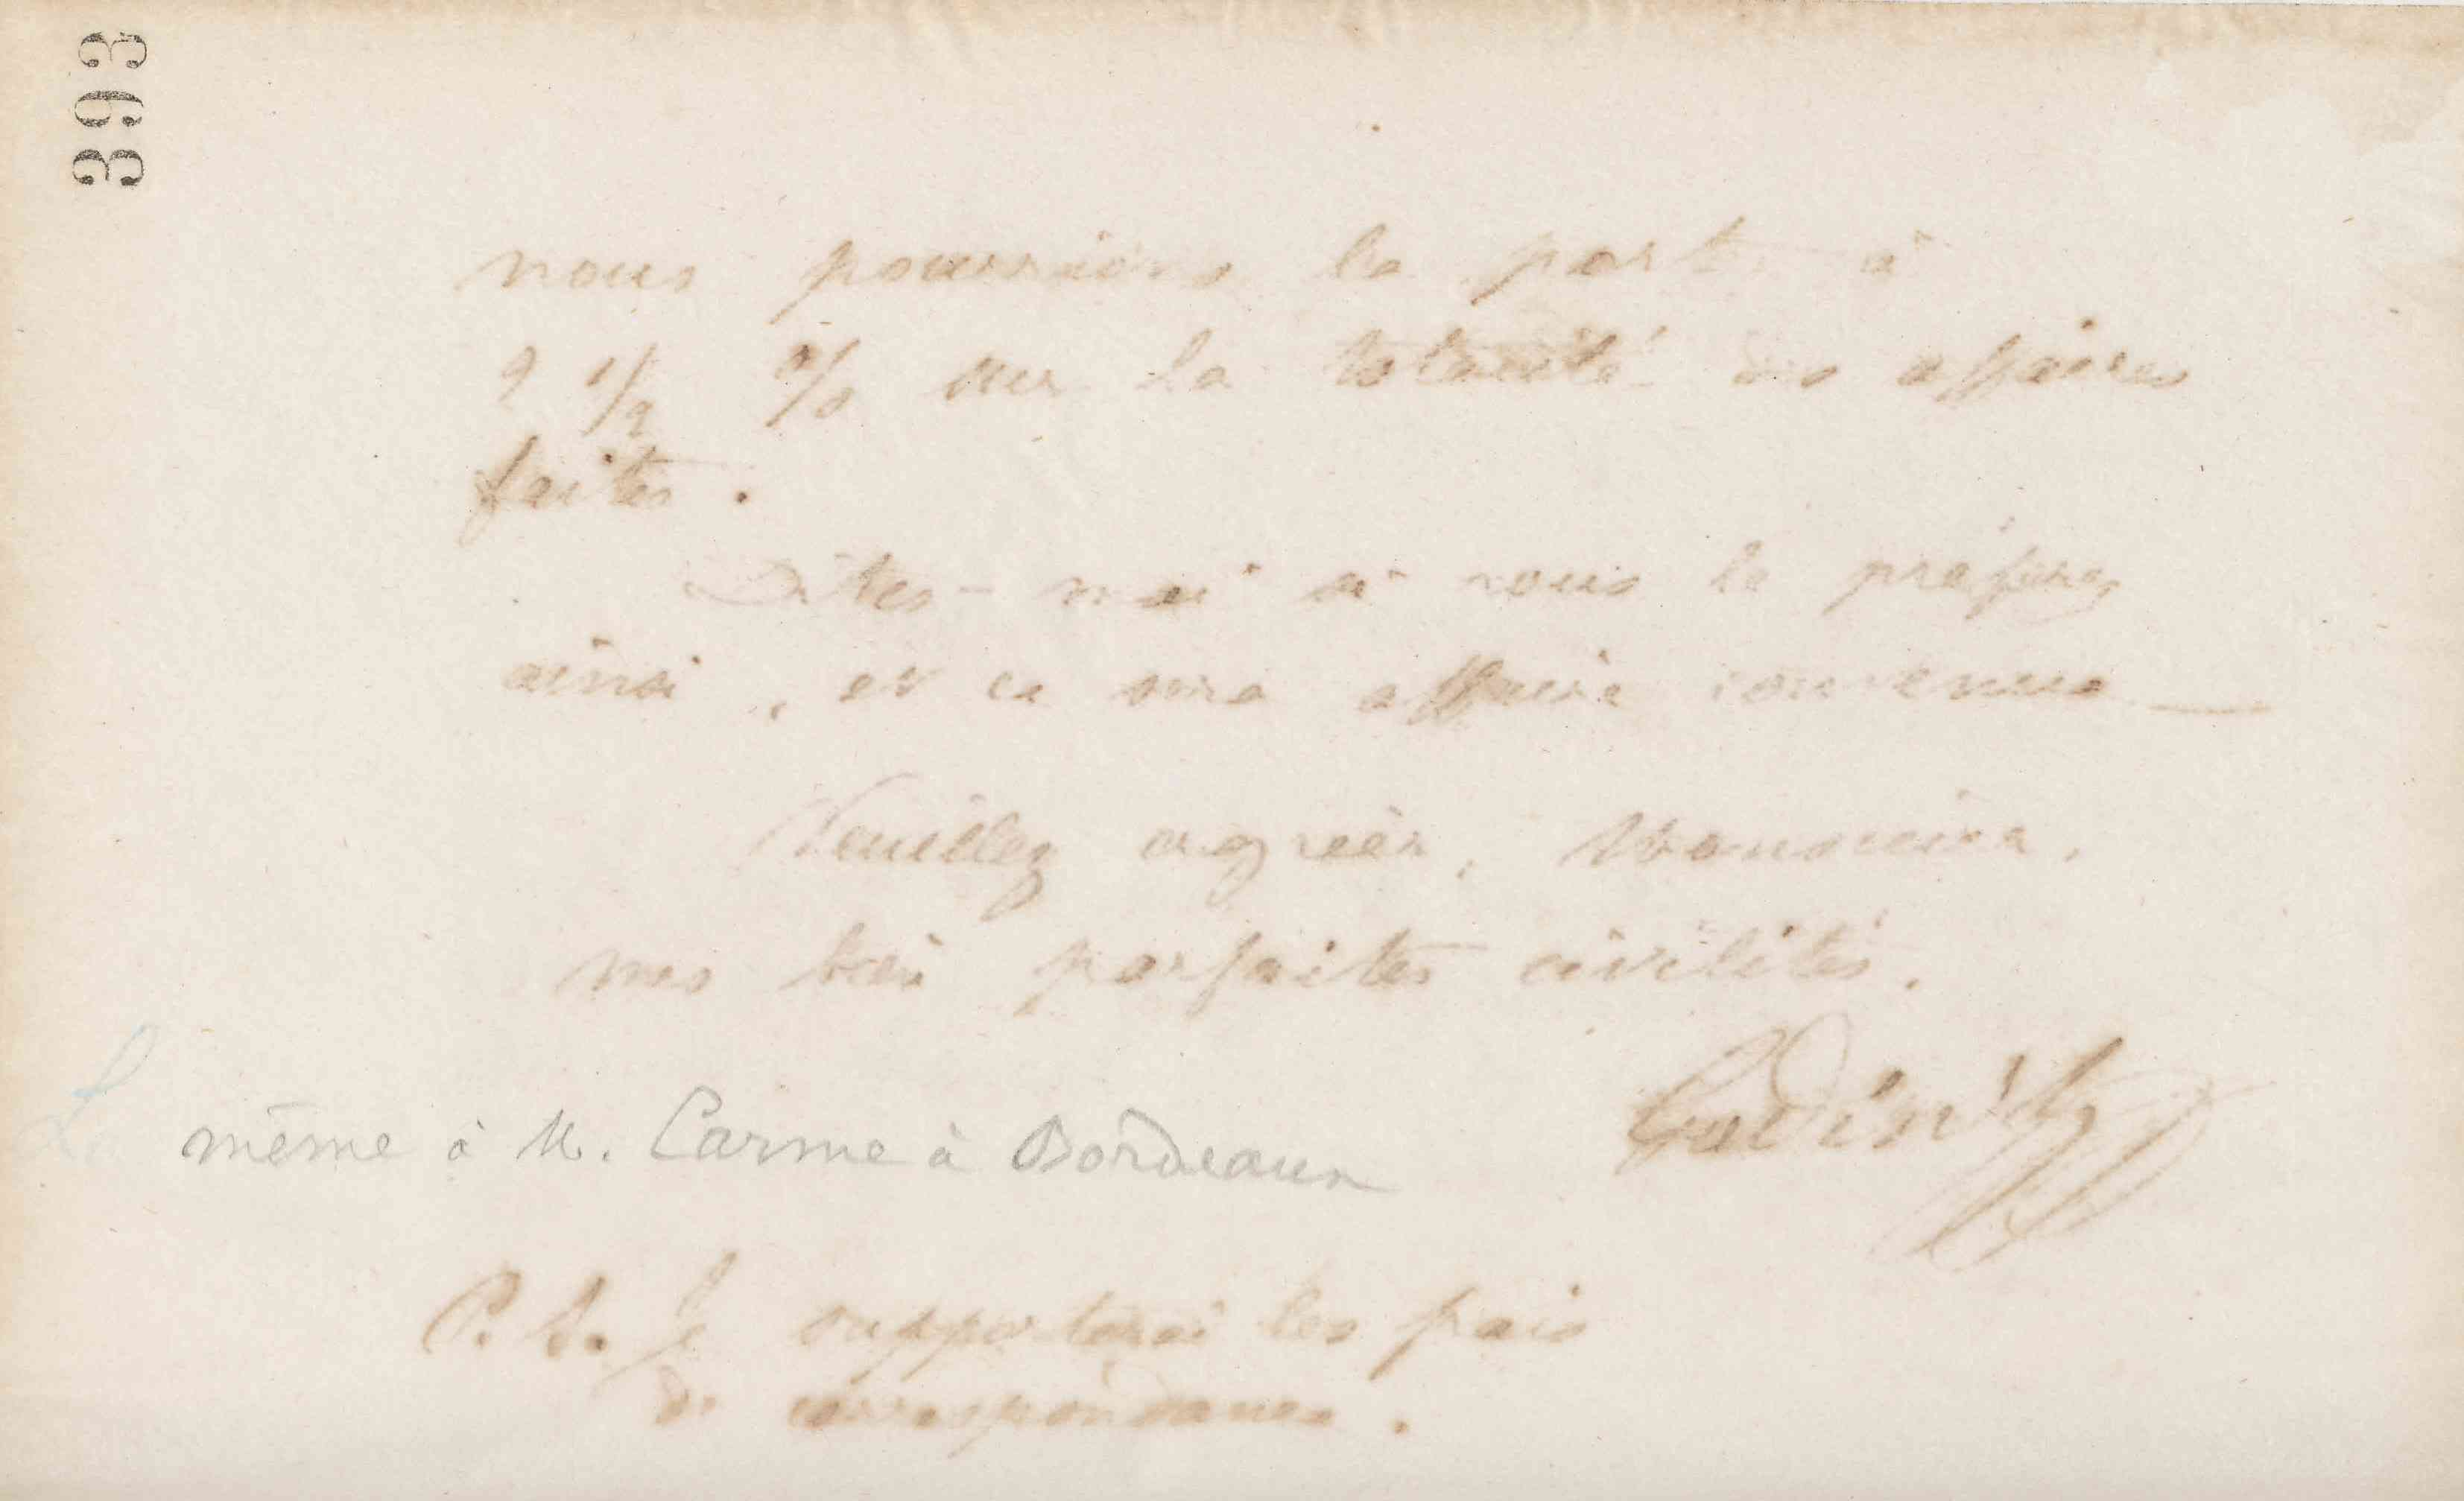 393
nous pourrions la porter à
2 1/2 % sur la totalité des affaires
faites.
Dites-moi si vous le préférez
ainsi, et ce sera affaire convenue
Veuillez agréer, Monsieur,
mes bien parfaites civilités.
Godin
La même à M. Carme à Bordeaux
P. S. Je supporterai les frais
de correspondance.